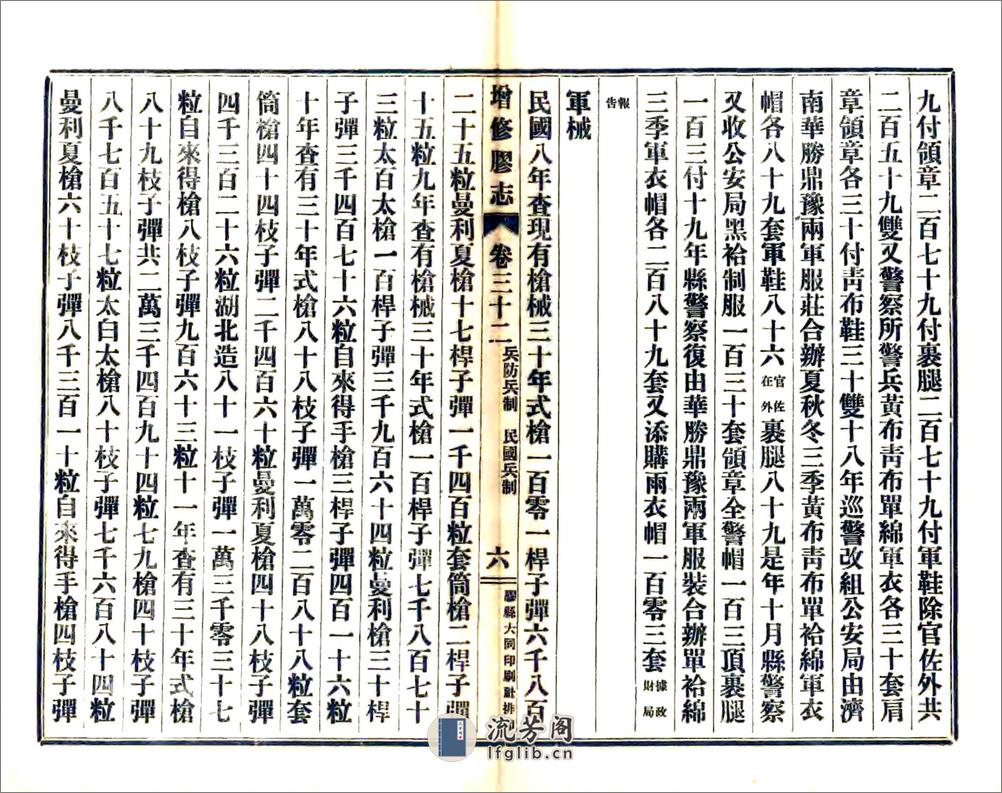 九付領章二百七十九付裹腿二百七十九付軍鞋除官佐外共
二百五十九雙又警察所警兵黃布靑布單綿軍衣各三十套肩
章領章各三十付靑布鞋三十雙十八年巡警改組公安局由濟
南華勝鼎豫兩軍服莊合辦夏秋冬三季黃布靑布單袷綿軍衣
帽各八十九套軍鞋八十六官佐在外裹腿八十九是年十月縣警察
又收公安局黑袷制服一百三十套領章全警帽一百三頂裹腿
一百三付十九年縣警察復由華勝鼎豫兩軍服裝合辦單袷綿
三季軍衣帽各二百八十九套又添購雨衣帽一百零三套據政財局
報告
軍械
民國八年查現有槍械三十年式槍一百零一桿子彈六千八百
增修膠志 卷三十二 兵防兵制 民國兵制 六 膠縣大同印刷社排印
二十五粒曼利夏槍十七桿子彈一千四百粒套筒槍二桿子彈
十五粒九年查有槍械三十年式槍一百桿子彈七千八百七十
三粒太百太槍一百桿子彈三千九百六十四粒曼利槍三十桿
子彈三千四百七十六粒自來得手槍三桿子彈四百一十六粒
十年查有三十年式槍八十八枝子彈一萬零二百八十八粒套
筒槍四十四枝子彈二千四百六十粒曼利夏槍四十八枝子彈
四千三百二十六粒湖北造八十一枝子彈一萬三千零三十七
粒自來得槍八枝子彈九百六十三粒十一年查有三十年式槍
八十九枝子彈共二萬三千四百九十四粒七九槍四十枝子彈
八千七百五十七粒太白太槍八十枝子彈七千六百八十四粒
曼利夏槍六十枝子彈八千三百一十粒自來得手槍四枝子彈
流芳阁
lfglib.cn